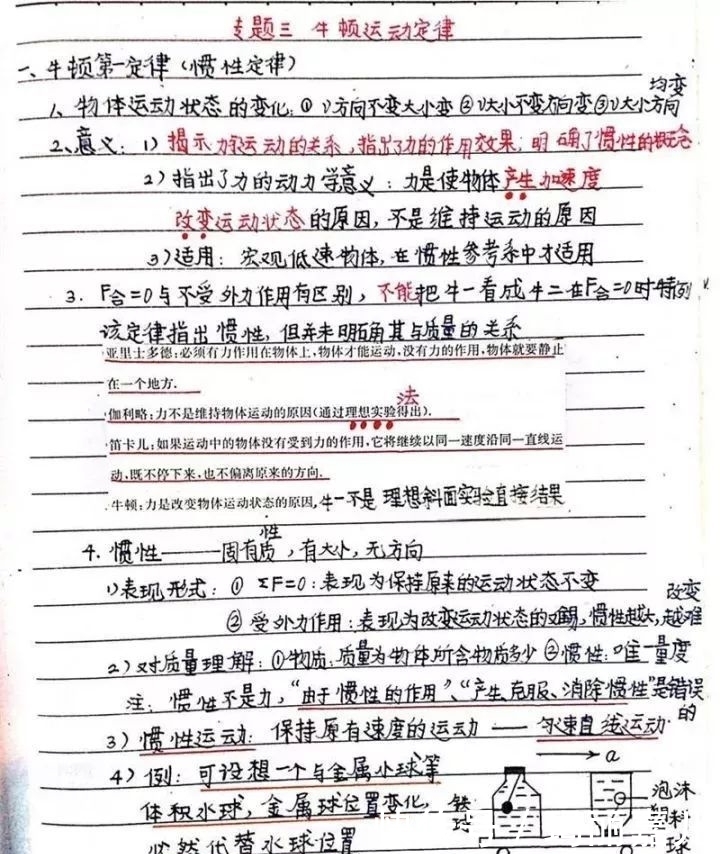 专题三 牛顿运动定律
一、牛顿第一定律(惯性定律)
1、物体运动状态的变化:①v方向不变大小变②v大小不变方向变③v大小方向均变
2、意义:1)揭示力和运动的关系,指出了力的作用效果;明确了惯性的概念
2)指出了力的动力学意义:力是使物体产生加速度
改变运动状态的原因,不是维持运动的原因
3)适用:宏观低速物体,在惯性参考系中才适用
3.F合=0与不受外力作用有区别,不能把牛一看成牛二在F合=0时特例
该定律指出惯性,但并未明确其与质量的关系
亚里士多德:必须有力作用在物体上,物体才能运动,没有力的作用,物体就要静止
在一个地方.
伽利略:力不是维持物体运动的原因(通过理想实验法得出).
笛卡儿:如果运动中的物体没有受到力的作用,它将继续以同一速度沿同一直线运
动,既不停下来,也不偏离原来的方向.
牛顿:力是改变物体运动状态的原因,牛一不是理想斜面实验直接结果
4.惯性——固有性质,有大小,无方向
1)表现形式:①ΣF=0:表现为保持原来的运动状态不变
②受外力作用:表现为改变运动状态的难易,惯性越大,越难改变
2)对质量理解:①物质:质量为物体所含物质多少②惯性:唯一量度
注:惯性不是力,“由于惯性的作用”、“产生、克服、消除惯性”是错误的
3)惯性运动:保持原有速度的运动——匀速直线运动.
4)例:可设想一个与金属小球等
体积水球,金属球位置变化,
必然代替水球位置
a
铁球
泡沫塑料球